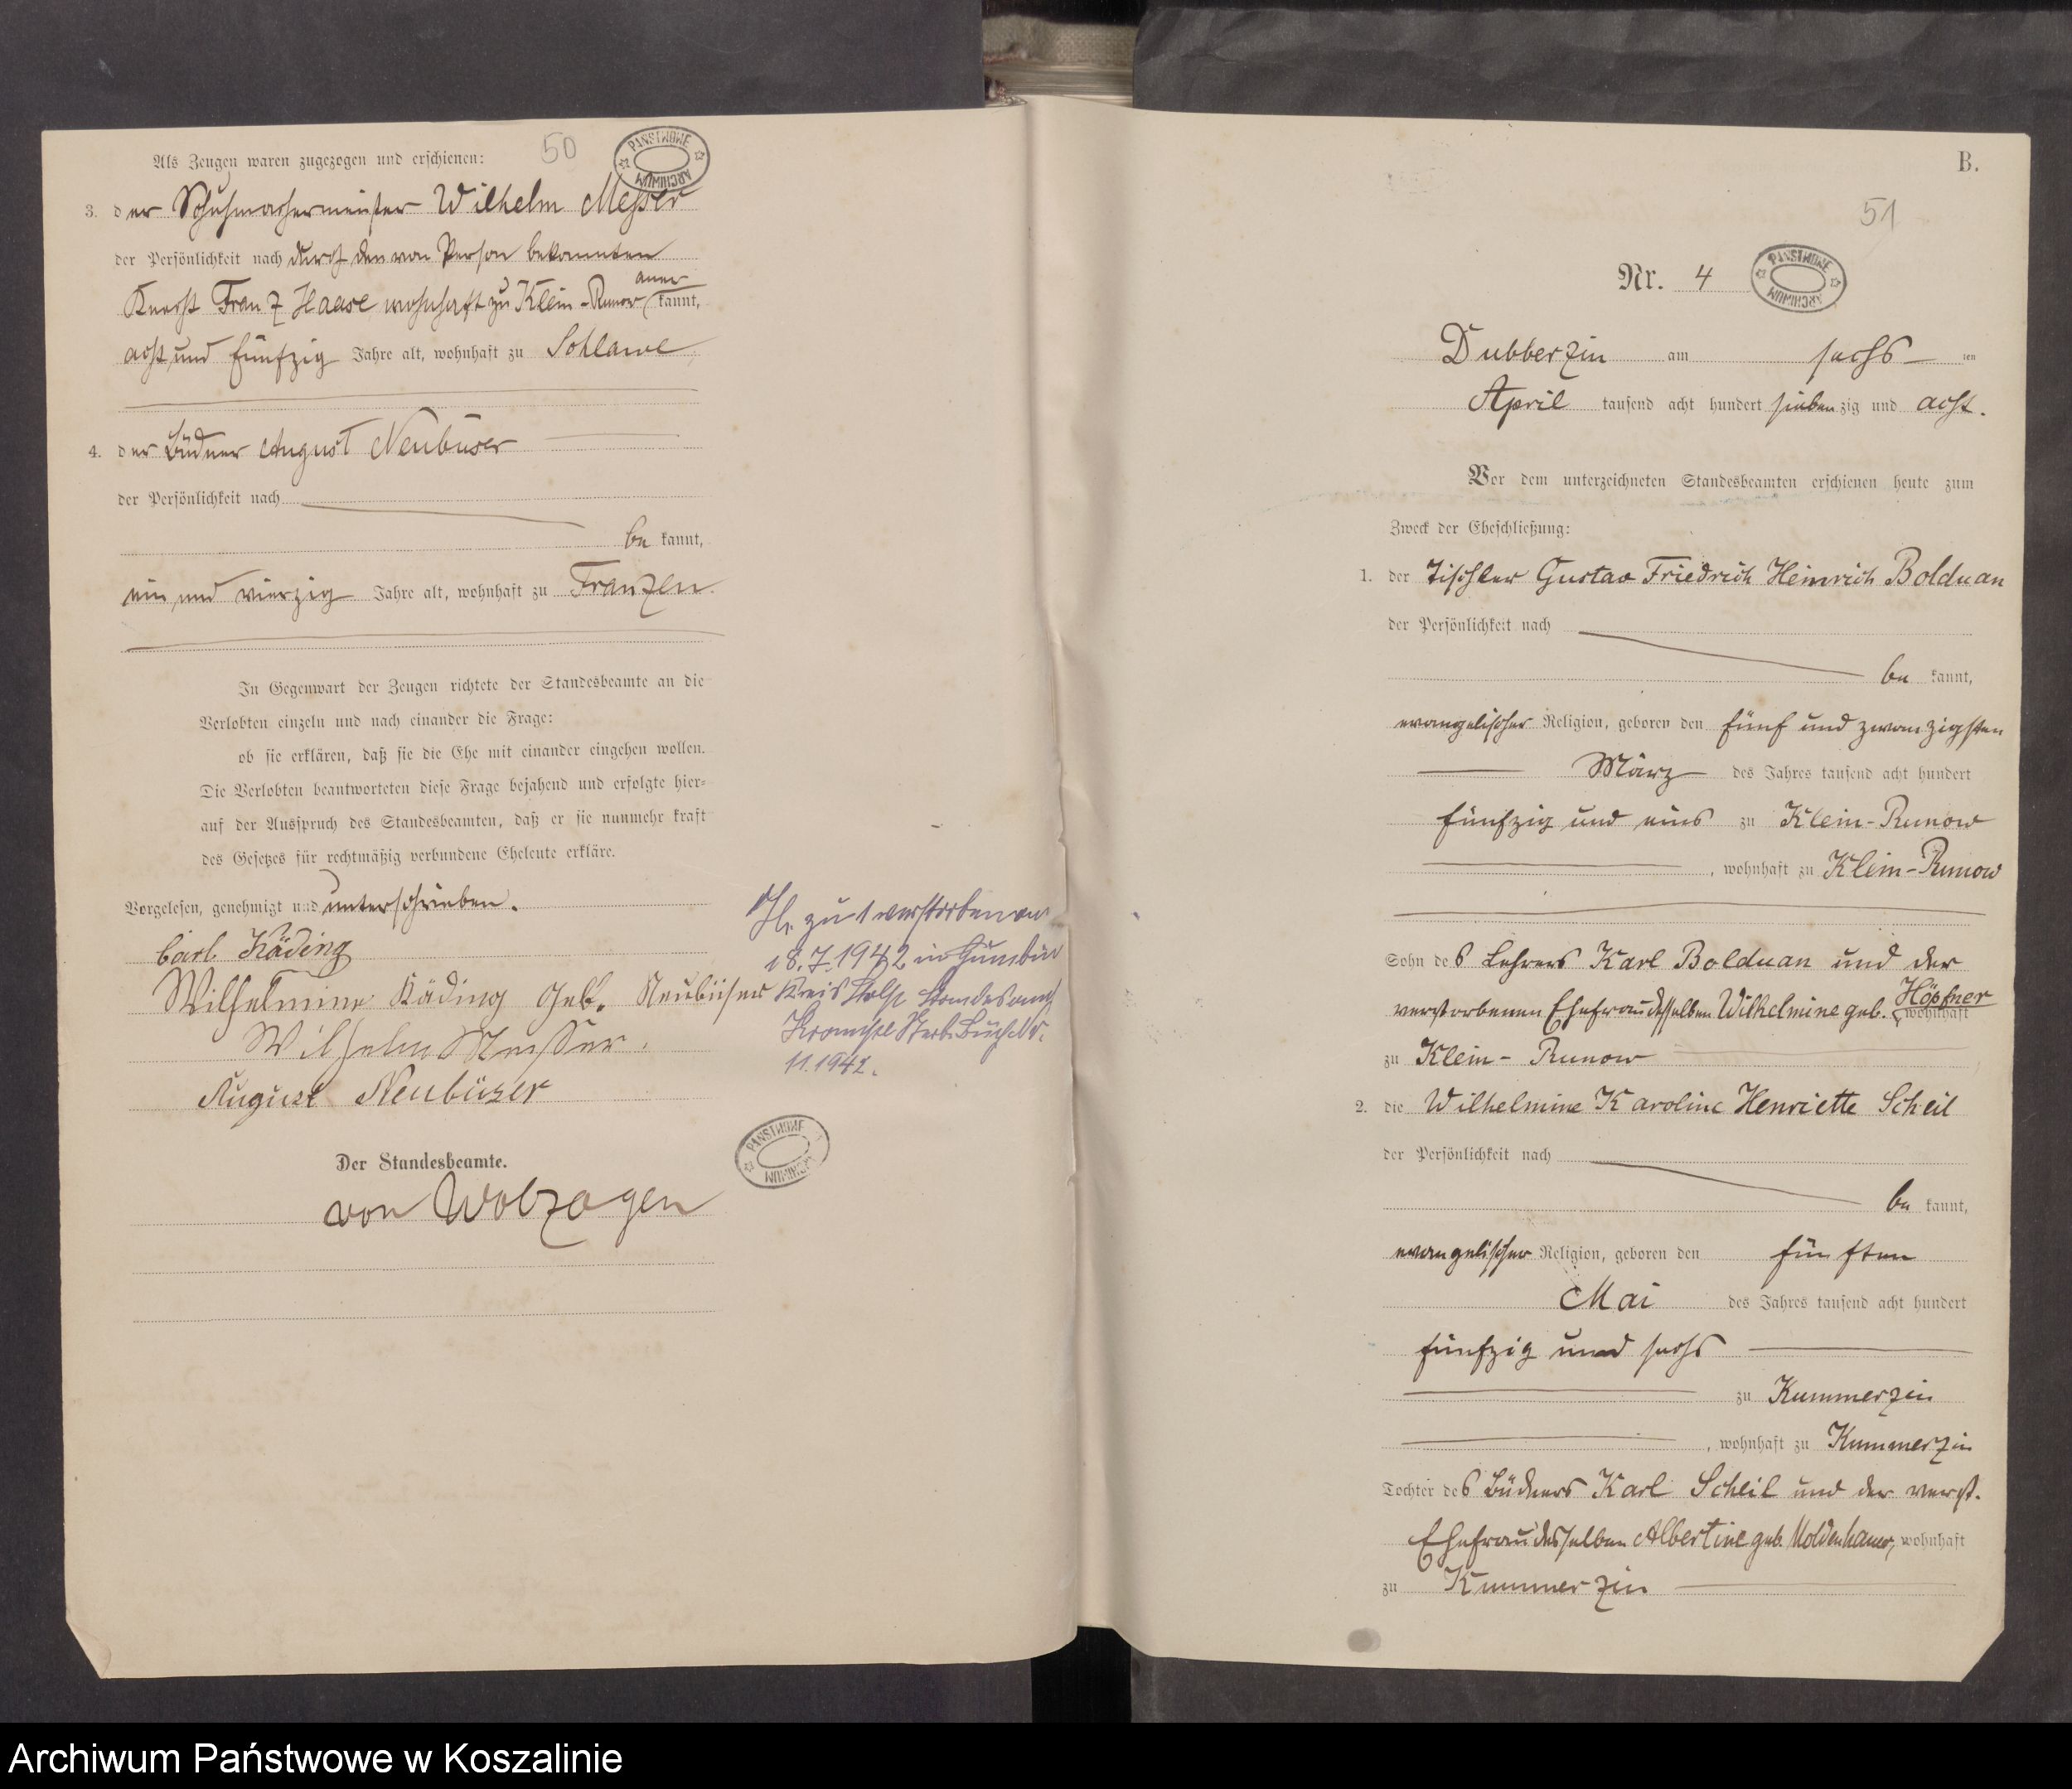 50
PAŃSTWOWE ARCHIWUM
Als Zeugen waren zugezogen und erschienen:
3. der Schuhmachermeister Wilhelm Messer
der Persönlichkeit nach durch den von Person bekannten
Knecht Franz Haase wohnhaft zu Klein-Runow aner
kannt,
acht und fünfzig Jahre alt, wohnhaft zu Schlawe
4. der Büdner August Neubüser
der Persönlichkeit nach
be kannt,
ein und vierzig Jahre alt, wohnhaft zu Franzen.
In Gegenwart der Zeugen richtete der Standesbeamte an die
Verlobten einzeln und nach einander die Frage:
ob sie erklären, daß sie die Ehe mit einander eingehen wollen.
Die Verlobten beantworteten diese Frage bejahend und erfolgte hier=
auf der Ausspruch des Standesbeamten, daß er sie nunmehr kraft
des Gesetzes für rechtmäßig verbundene Eheleute erkläre.
Vorgelesen, genehmigt und unterschrieben.
Carl Käding
Wilhelmine Käding geb. Neubüser
Wilhelm Messer.
August Neubüser
Der Standesbeamte.
von Wolzogen
zu 1 verstorben am
18.7.1942 in Gumbin
Kreis Stolp Standesamt
Sterb. Buch Nr.
11.1942.
PAŃSTWOWE ARCHIWUM
B.
51
Nr. 4
PAŃSTWOWE ARCHIWUM
Dubberzin am sechs ten
April tausend acht hundert siebenzig und acht.
Vor dem unterzeichneten Standesbeamten erschienen heute zum
Zweck der Eheschließung:
1. der Tischler Gustav Friedrich Heinrich Bolduan
der Persönlichkeit nach
be kannt,
evangelischer Religion, geboren den fünf und zwanzigsten
März des Jahres tausend acht hundert
fünfzig und eins zu Klein-Runow
, wohnhaft zu Klein-Runow
Sohn des Lehrers Karl Bolduan und der
verstorbenen Ehefrau desselben Wilhelmine geb. Höpfner
wohnhaft
zu Klein-Runow
2. die Wilhelmine Karoline Henriette Scheil
der Persönlichkeit nach
be kannt,
evangelischer Religion, geboren den fünften
Mai des Jahres tausend acht hundert
fünfzig und sechs
zu Kummerzin
, wohnhaft zu Kummerzin
Tochter des Büdners Karl Scheil und der verst.
Ehefrau desselben Albertine geb. Moldenhauer, wohnhaft
zu Kummerzin
Archiwum Państwowe w Koszalinie